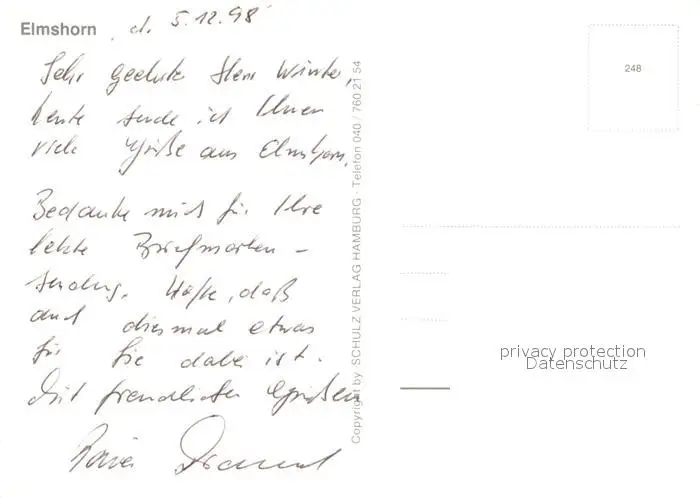 Elmshorn, d. 5.12.98
Sehr geehrter Herr Winter,
heute sende ich Ihnen
viele Grüße aus Elmshorn.
Bedanke mich für Ihre
letzte Briefmarken-
sendung. Hoffe, daß
auch diesmal etwas
für Sie dabei ist.
Mit freundlichen Grüßen
Copyright by SCHULZ VERLAG HAMBURG · Telefon 040 / 760 21 54
248
privacy protection
Datenschutz